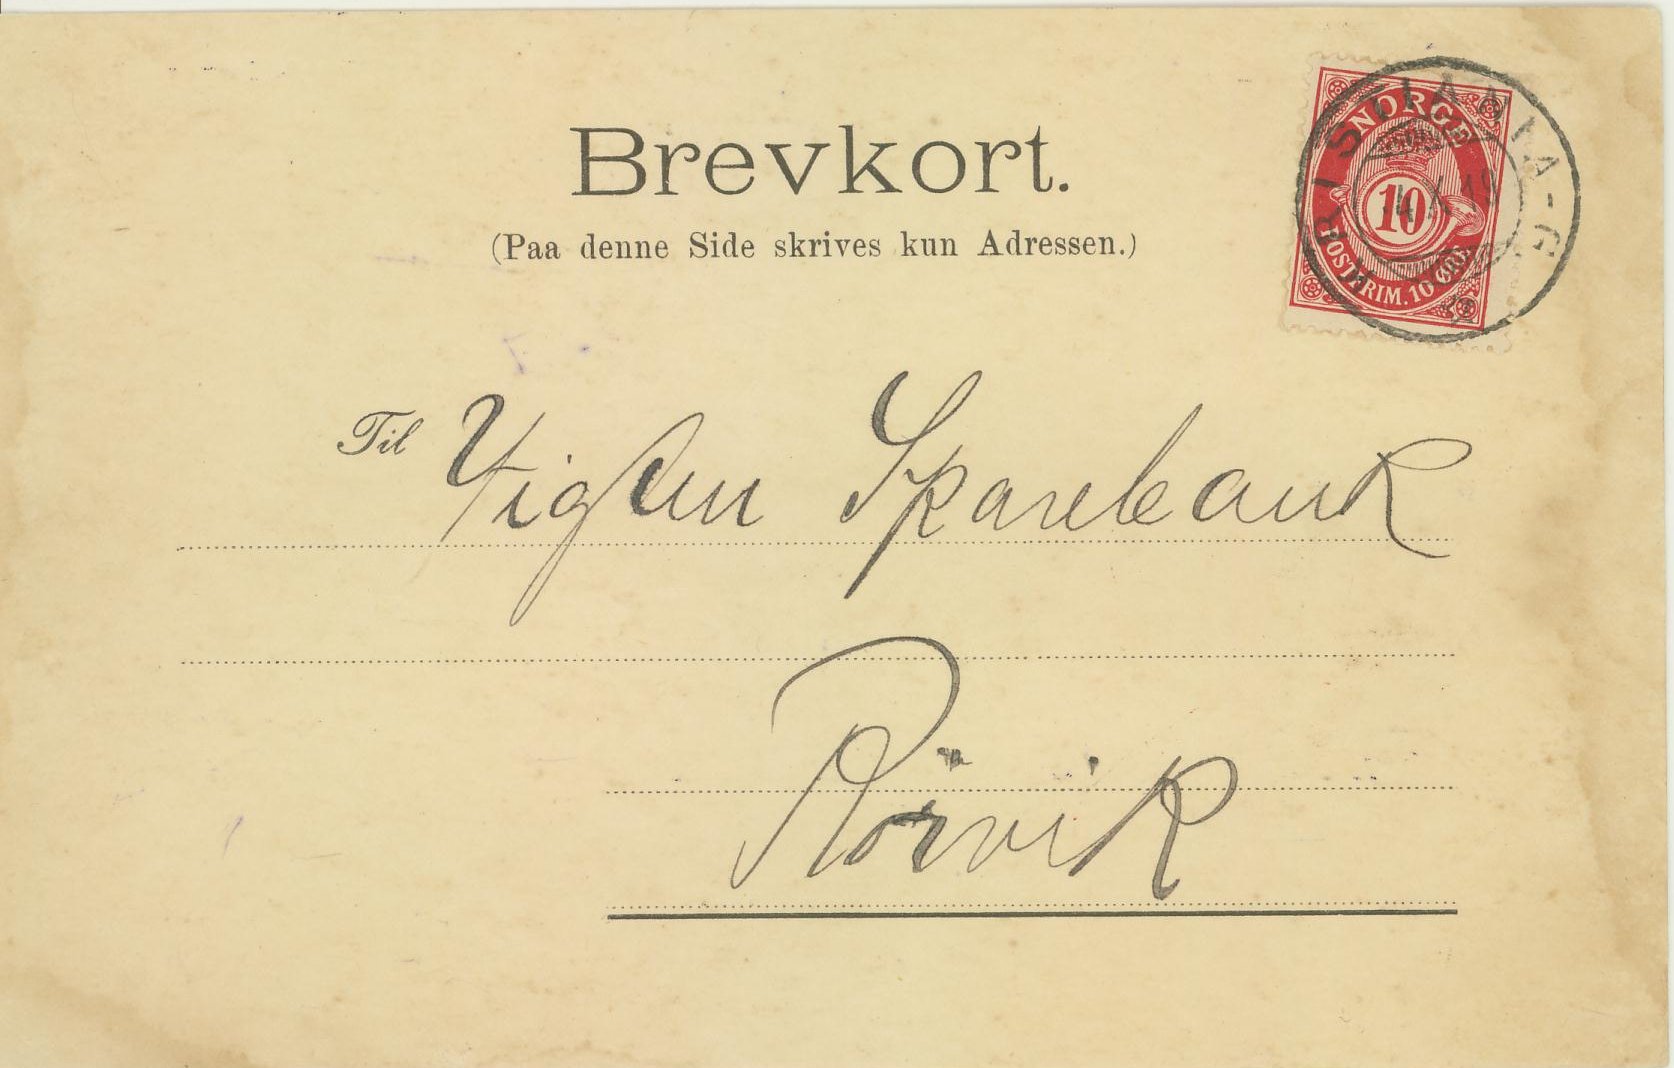 Brevkort.
(Paa denne Side skrives kun Adressen.)
NORGE
10
POSTFRIM. 10 ØRE
KRISTIANIA-G
Til Vigten Sparebank
Rörvik